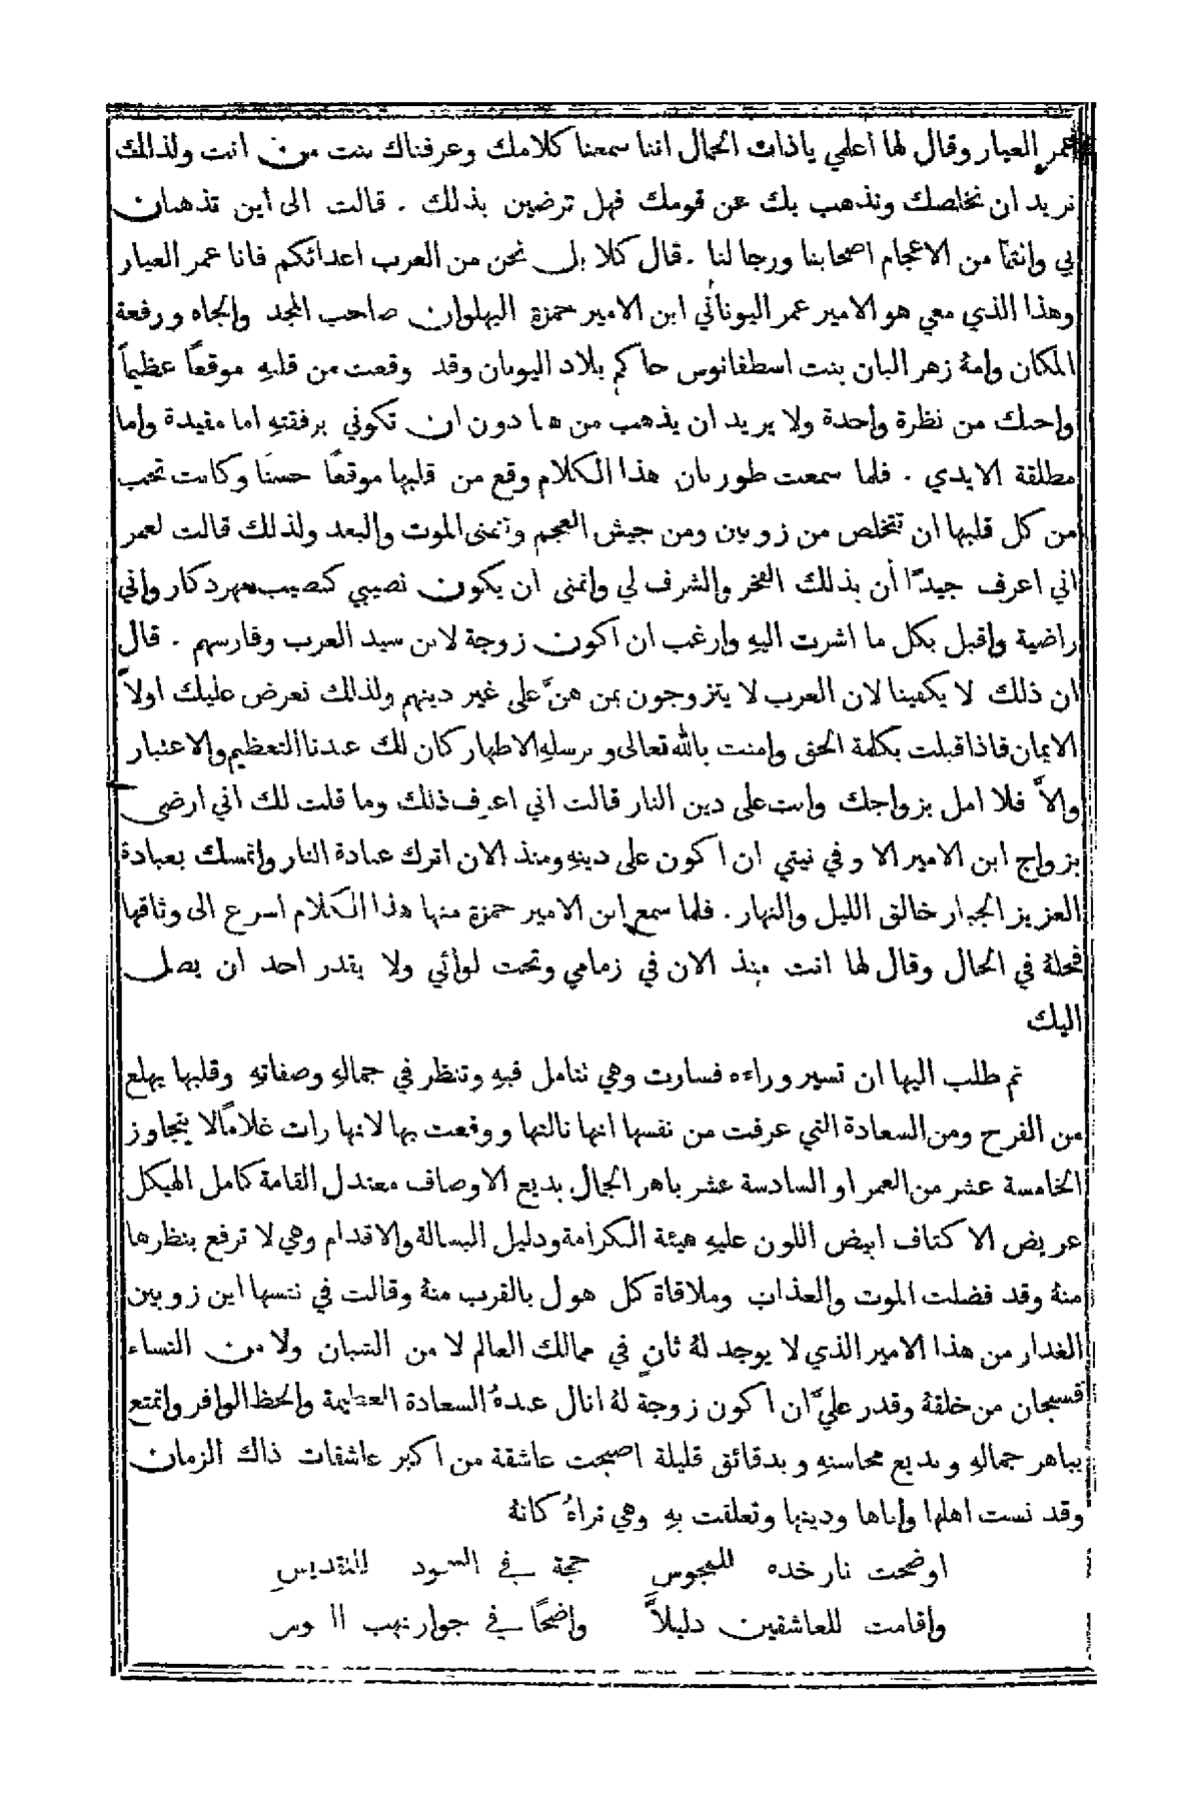 عمر العيار وقال لها اعلمي ياذات الجمال اننا سمعنا كلامك وعرفناك بنت من انت ولذلك
نريد ان نخلصك ونذهب بك عن قومك فهل ترضين بذلك . قالت الى اين تذهبان
بي وانتما من الاعجام اصحابنا ورجالنا . قال كلا بل نحن من العرب اعدائكم فانا عمر العيار
وهذا الذي معي هو الامير عمر اليوناني ابن الامير حمزة البهلوان صاحب المجد والجاه ورفعة
المكان وامهُ زهر البان بنت اسطفانوس حاكم بلاد اليونان وقد وقعت من قلبهِ موقعًا عظيمًا
واحبك من نظرة واحدة ولا يريد ان يذهب من هنا دون ان تكوني برفقتهِ اما مقيدة واما
مطلقة الايدي . فلما سمعت طوربان هذا الكلام وقع من قلبها موقعًا حسنًا وكانت تحب
من كل قلبها ان تتخلص من زوبين ومن جيش العجم وتتمنى الموت والبعد ولذلك قالت لعمر
اني اعرف جيدًا أن بذلك الفخر والشرف لي واتمنى ان يكون نصيبي كنصيب مهردكار واني
راضية واقبل بكل ما اشرت اليهِ وارغب ان اكون زوجة لابن سيد العرب وفارسهم . قال
ان ذلك لا يكفينا لان العرب لا يتزوجون بمن هنَّ على غير دينهم ولذلك نعرض عليك اولاً
الايمان فاذا قبلت بكلمة الحق وامنت بالله تعالى وبرسلهِ الاطهار كان لك عندنا التعظيم والاعتبار
والاَّ فلا امل بزواجك وانت على دين النار قالت اني اعرف ذلك وما قلت لك اني ارضى
بزواج ابن الامير الا وفي نيتي ان اكون على دينهِ ومنذ الان اترك عبادة النار واتمسك بعبادة
العزيز الجبار خالق الليل والنهار . فلما سمع ابن الامير حمزة منها هذا الكلام اسرع الى وثاقها
فحلهُ في الحال وقال لها انت منذ الان في زمامي وتحت لوائي ولا يقدر احد ان يصل
اليك
ثم طلب اليها ان تسير وراءه فسارت وهي تتامل فيهِ وتنظر في جمالهِ وصفاتهِ وقلبها يهلع
من الفرح ومن السعادة التي عرفت من نفسها انها نالتها ووقعت بها لانها رات غلامًا لا يتجاوز
الخامسة عشر من العمر او السادسة عشر باهر الجمال بديع الاوصاف معتدل القامة كامل الهيكل
عريض الاكتاف ابيض اللون عليهِ هيئة الكرامة ودليل البسالة والاقدام وهي لا ترفع بنظرها
منهُ وقد فضلت الموت والعذاب وملاقاة كل هول بالقرب منهُ وقالت في نفسها اين زوبين
الغدار من هذا الامير الذي لا يوجد لهُ ثانٍ في ممالك العالم لا من الشبان ولا من النساء
فسبحان من خلقهُ وقدر عليَّ ان اكون زوجة لهُ انال عندهُ السعادة العظيمة والحظ الوافر واتمتع
بباهر جمالهِ وبديع محاسنهِ وبدقائق قليلة اصبحت عاشقة من اكبر عاشقات ذاك الزمان
وقد نست اهلها واباها ودينها وتعلقت بهِ وهي تراهُ كانهُ
اوضحت نار خده للمجوس حجة في السجود للتقديس
واقامت للعاشقين دليلاً واضحًا في جوار نهب